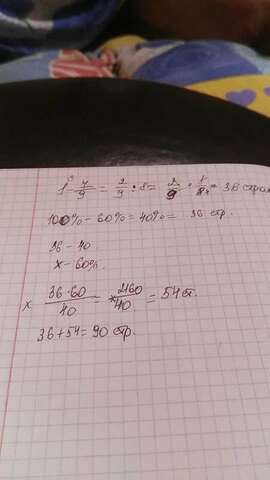 1 - 7/9 = 2/9 : 8 = 2/9 · 1/8 = 36 стран
100% - 60% = 40% = 36 стр.
36 - 40
x - 60%.
x 36·60/40 = 2160/40 = 54 ст.
36 + 54 = 90 стр.